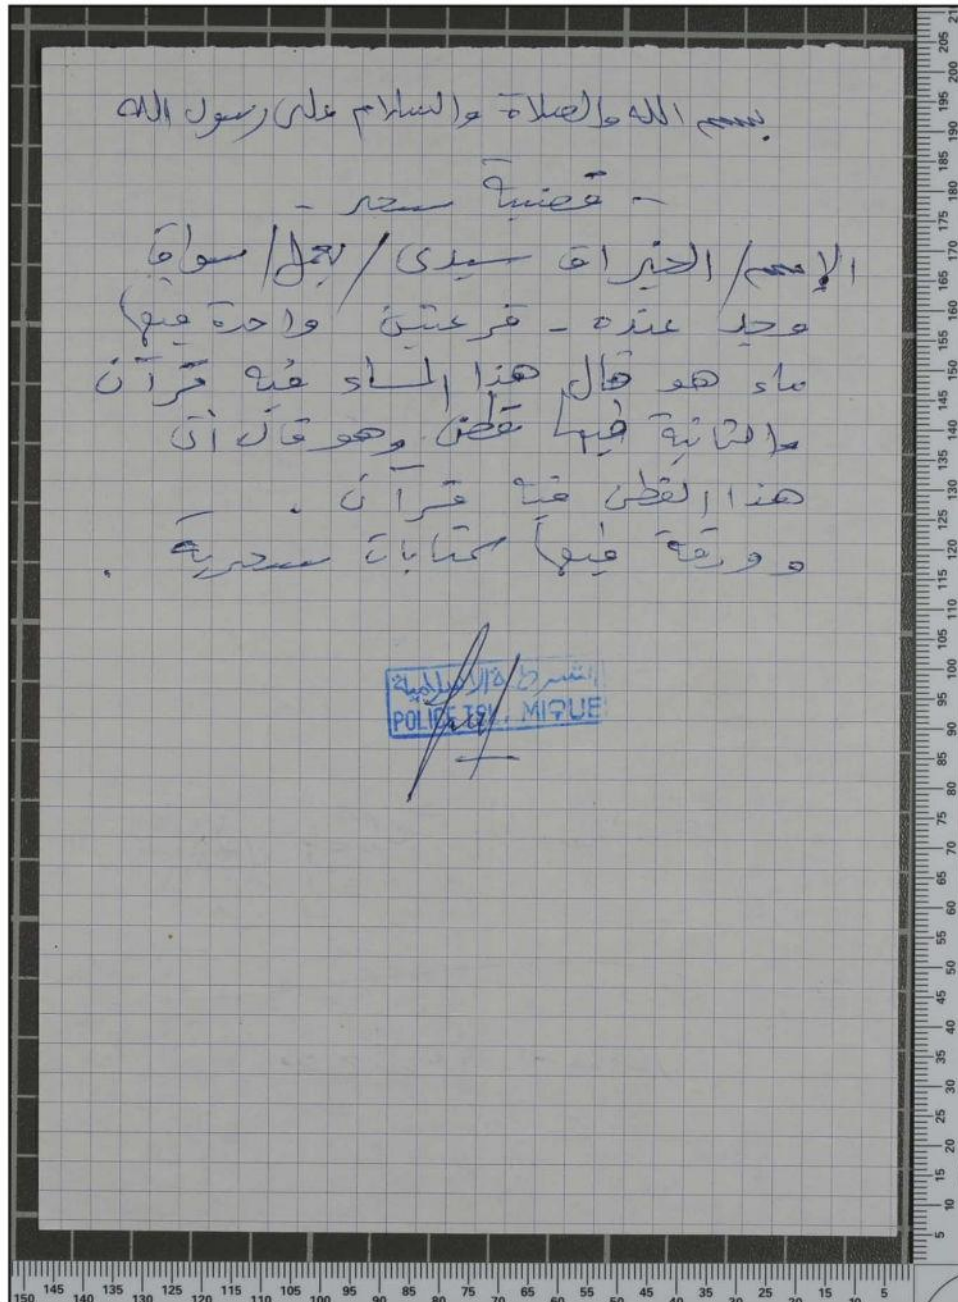 بسم الله والصلاة والسلام على رسول الله
- قضية سحر -
الإسم/ الخير اق سيدي/ يعمل/ سواق
وجد عنده - قرعتين واحدة فيها
ماء هو قال هذا الماء فيه قرآن
والثانية فيها قطن وهو قال أن
هذا القطن فيه قرآن .
وورقة فيها كتابات سحرية .
الشرطة الاسلامية
POLICE ISL. MIQUE